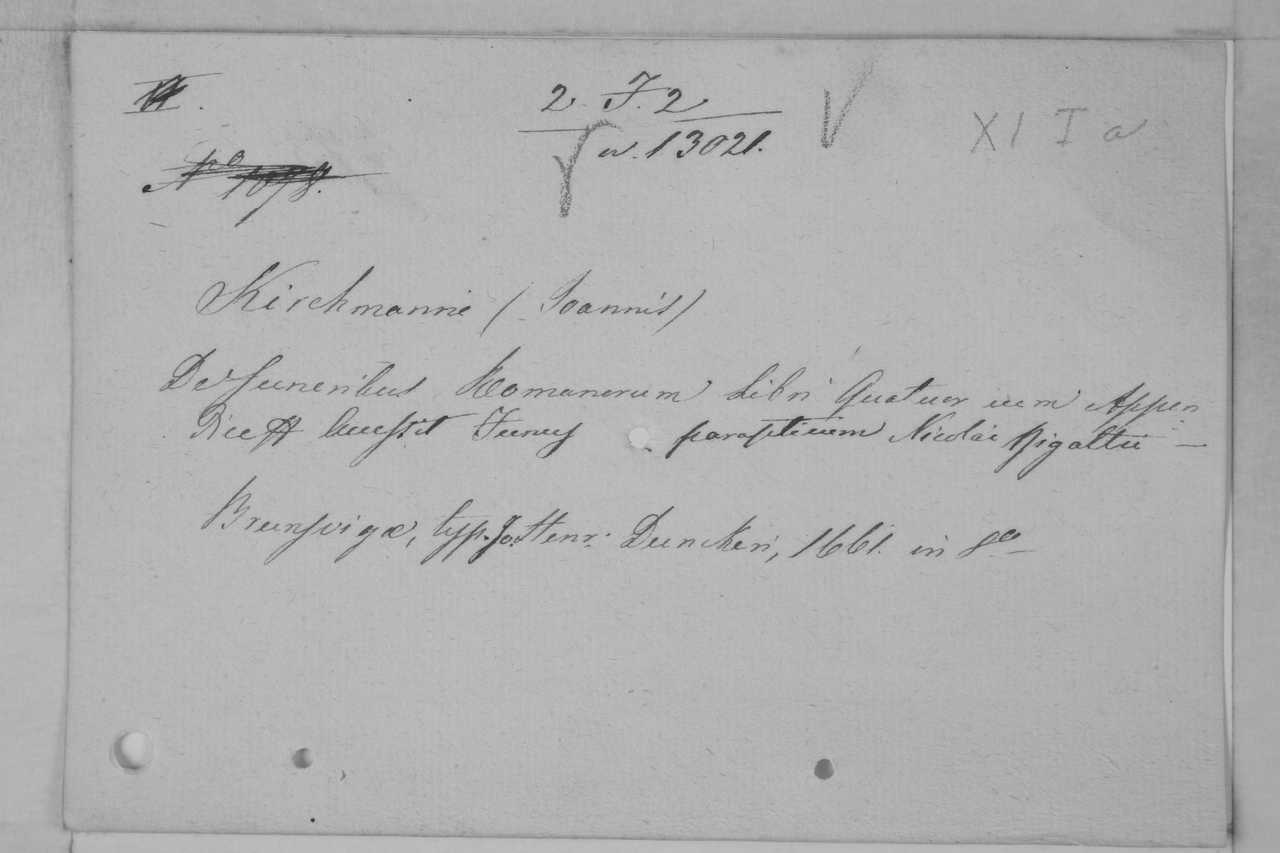 2. F. 2
w. 13021.
XI I a
No 1078.
Kirchmanni (Joannis)
De funeribus Romanorum Libri Quatuor cum Appen
dice. Accessit Funus parasiticum Nicolai Rigaltii —
Brunsvigæ, typ. Jo. Henr. Dunckeri, 1661. in 8o